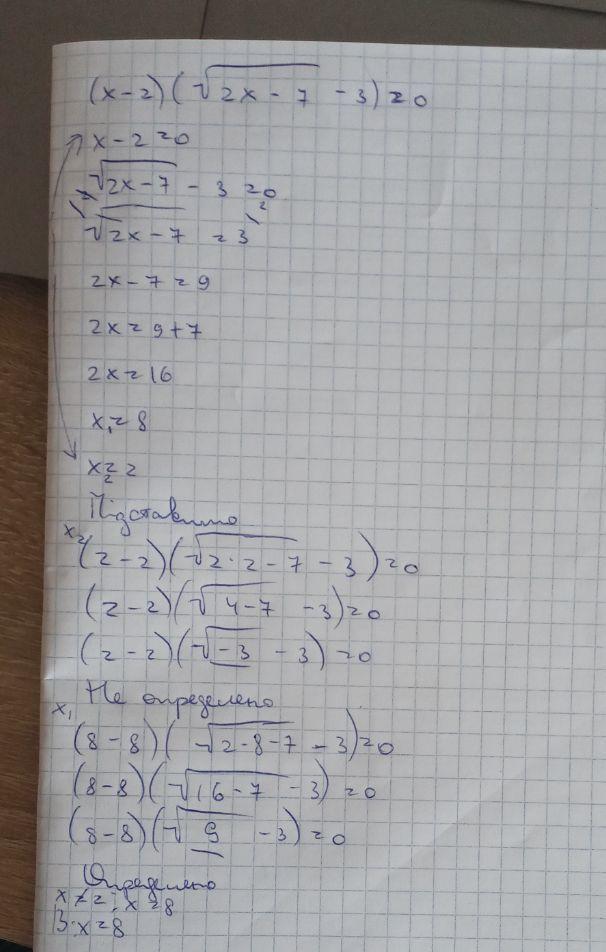 (x-2)(√2x-7 -3)=0
x-2=0
√2x-7 - 3 =0
√2x-7 =3²
2x-7=9
2x=9+7
2x=16
x₁=8
x₂=2
Підставимо
x₂ (2-2)(√2·2-7 -3)=0
(2-2)(√4-7 -3)=0
(2-2)(√-3 -3)=0
Не определено
x₁ (8-8)(√2·8-7 -3)=0
(8-8)(√16-7 -3)=0
(8-8)(√9 -3)=0
Определено
x≠2; x=8
В: x=8